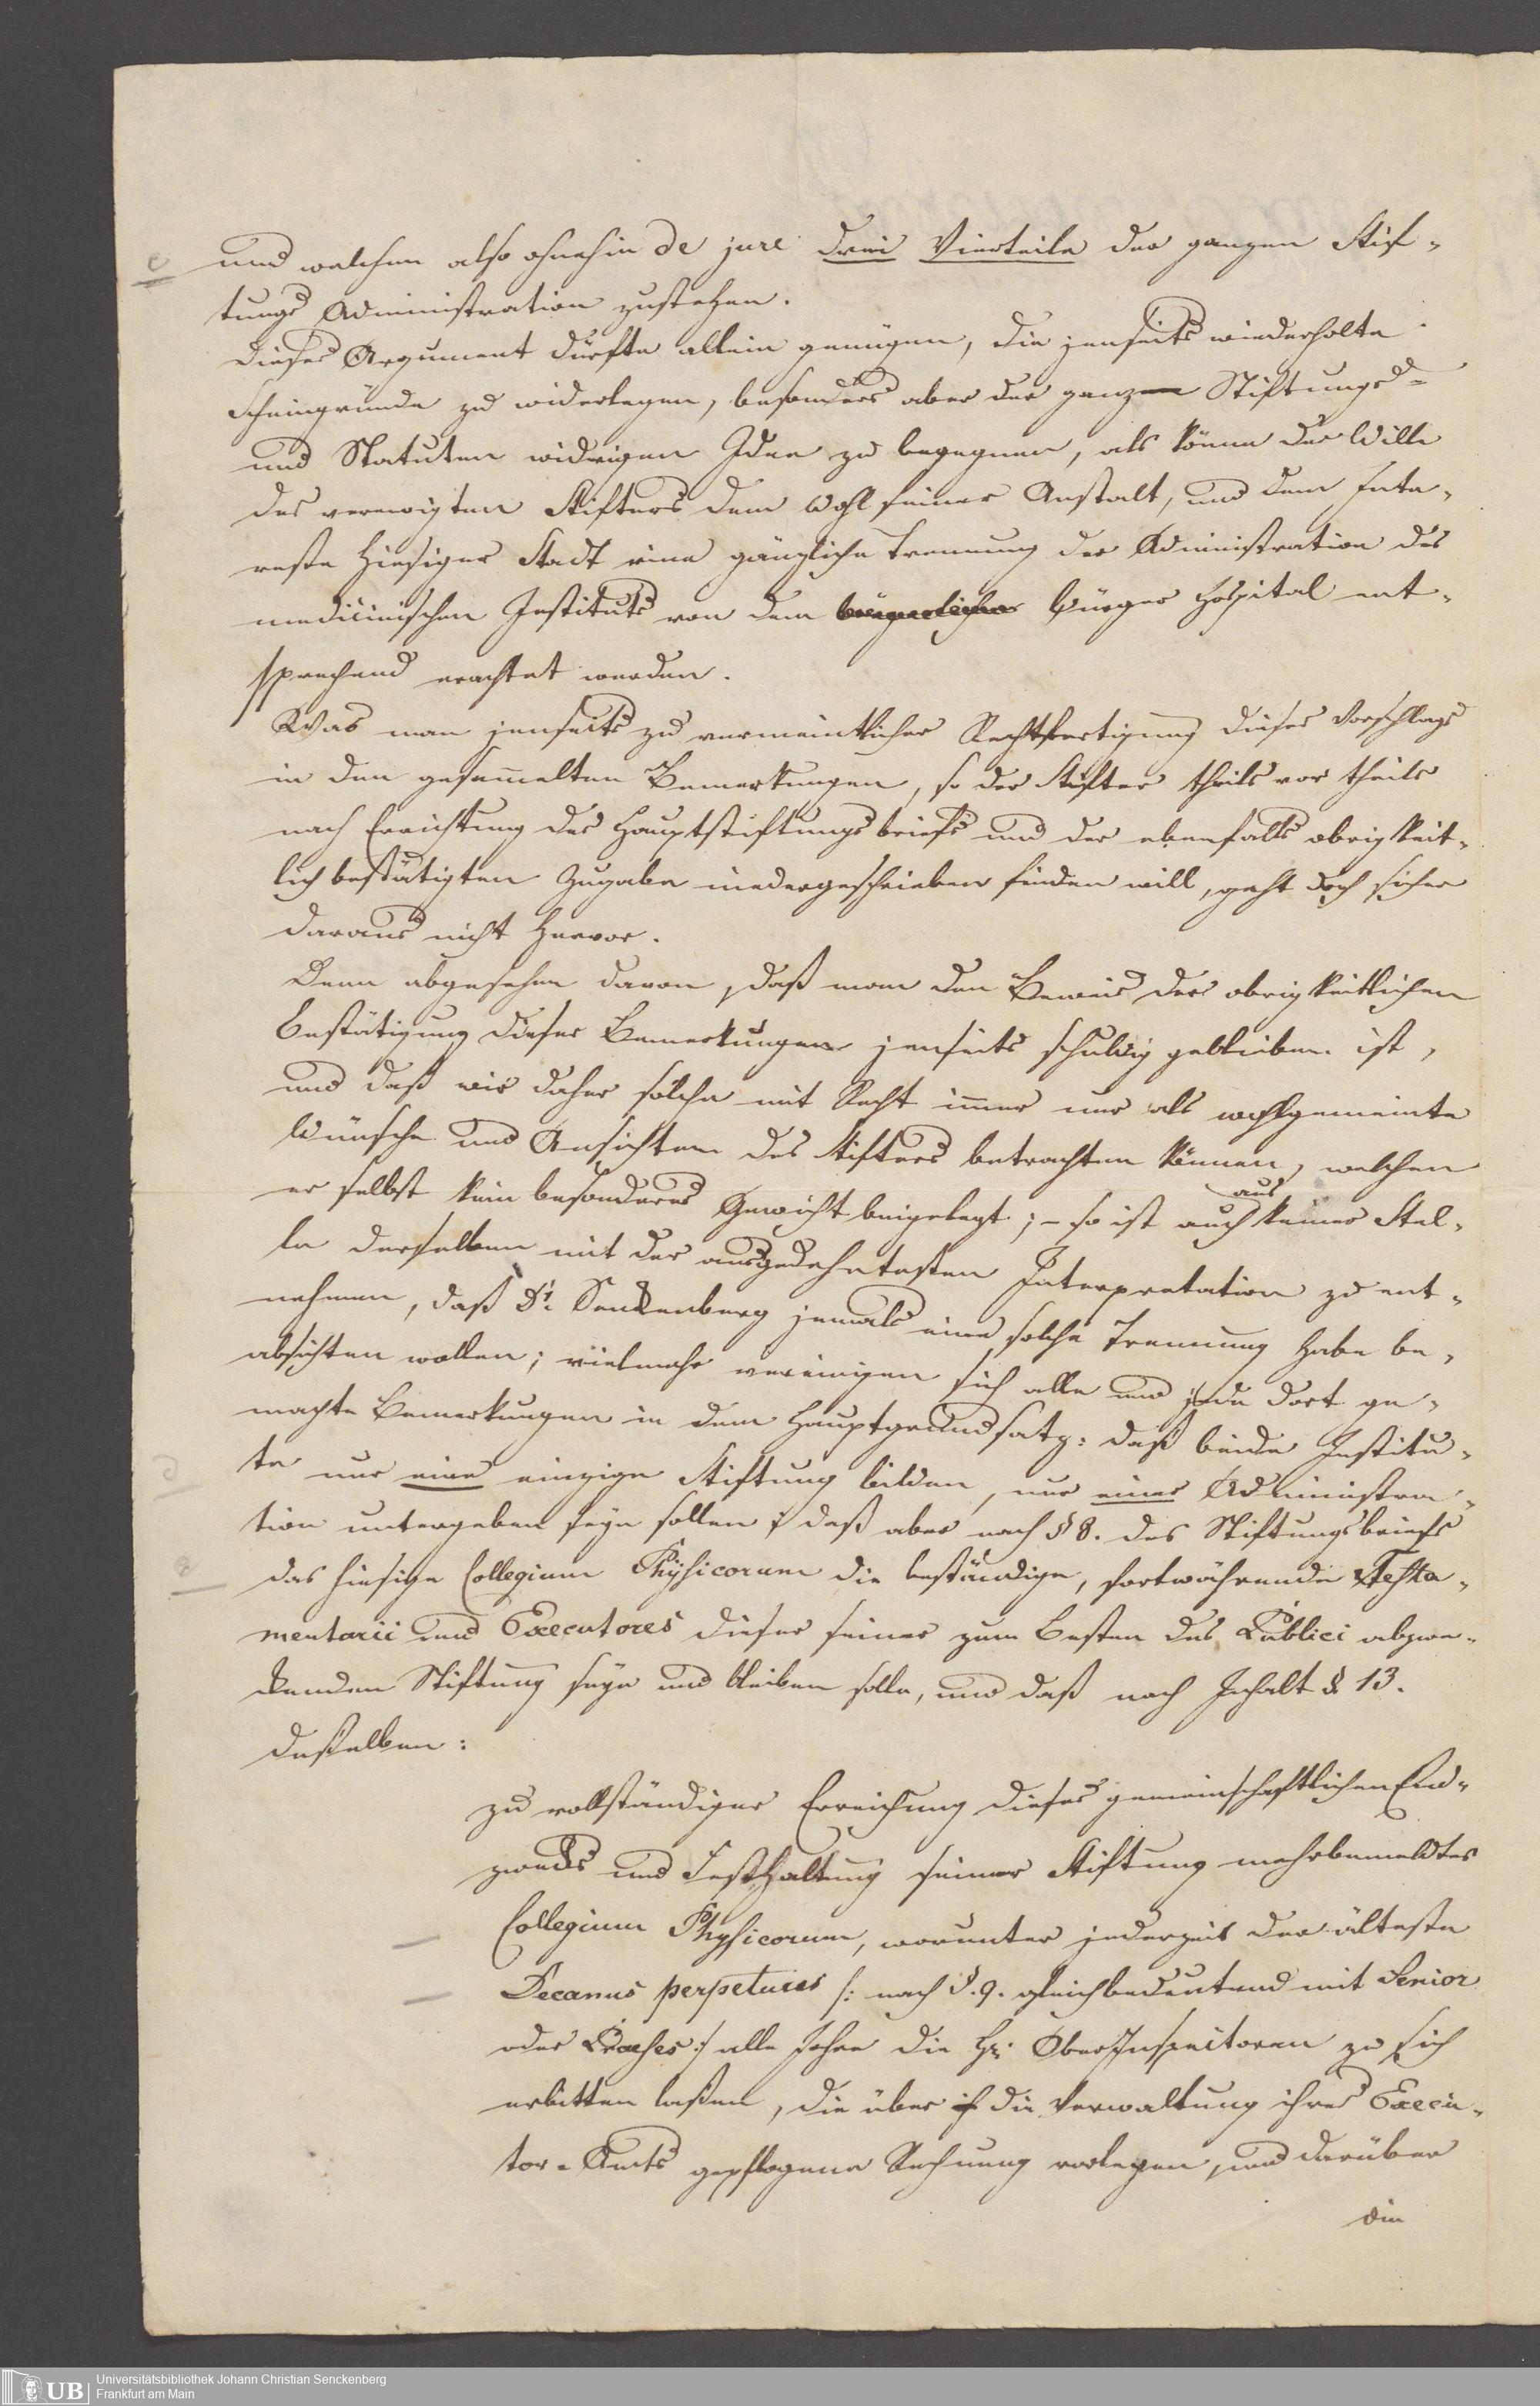 und welchen also ohnehin de jure drei Vierteile der ganzen Stif-
tungs Administration zustehen.
Dieses Argument dürfte allein genügen, die jenseits wiederholte
Scheingründe zu widerlegen, besonders aber der ganzen Stiftungs-
und Statuten widrigen Idee zu begegnen, als könne der Wille
des verewigten Stifters dem Wohl seiner Anstalt, und dem Inte-
resse hiesiger Stadt eine gänzliche Trennung der Administration des
medicinischen Instituts von dem bürgerlichen Bürger Hospital ent-
sprechend erachtet werden.
Was man jenseits zu vermeintlicher Rechtfertigung dieses Vorschlags
in den gesammelten Bemerkungen, so der Stifter theils vor theils
nach Errichtung des Hauptstiftungsbriefs und der ebenfalls obrigkeit-
lich bestätigten Zugabe niedergeschrieben finden will, geht doch sicher
daraus nicht hervor.
Denn abgesehen davon, daß man den Beweis der obrigkeitlichen
Bestätigung dieser Bemerkungen jenseits schuldig geblieben ist,
und daß wir daher solche mit Recht immer nur als wohlgemeinte
Wünsche und Ansichten des Stifters betrachten können, welchen
er selbst kein besonderes Gewicht beigelegt; - so ist auch aus keiner Stel-
le derselben mit der ausgedehntesten Interpretation zu ent-
nehmen, daß Dr. Senckenberg jemals eine solche Trennung habe be-
absichten wollen; vielmehr vereinigen sich alle und jede dort ge-
machte Bemerkungen in dem Hauptgrundsatz: daß beide Institu-
te nur eine einzige Stiftung bilden, nur einer Administra-
tion untergeben seyn sollen; daß aber nach § 8. des Stiftungsbriefs
das hiesige Collegium Physicorum die beständige, fortwährende Testa-
mentarii und Executores dieser seiner zum Besten des Publici abzwe-
ckenden Stiftung seyn und bleiben solle, und daß nach Inhalt § 13.
deßelben:
zu vollständiger Erreichung dieses gemeinschaftlichen End-
zwecks und Festhaltung seiner Stiftung mehrbemeldtes
Collegium Physicorum, worunter jederzeit der älteste
Decanus perpetuus /: nach §. 9. gleichbedeutend mit Senior
oder Praeses :/ alle Jahre die Hr. OberInspectoren zu sich
erbitten laßen, die über die Verwaltung ihres Execu-
tor-Amts gepflogene Rechnung vorlegen, und darüber
die
Universitätsbibliothek Johann Christian Senckenberg
UB
Frankfurt am Main